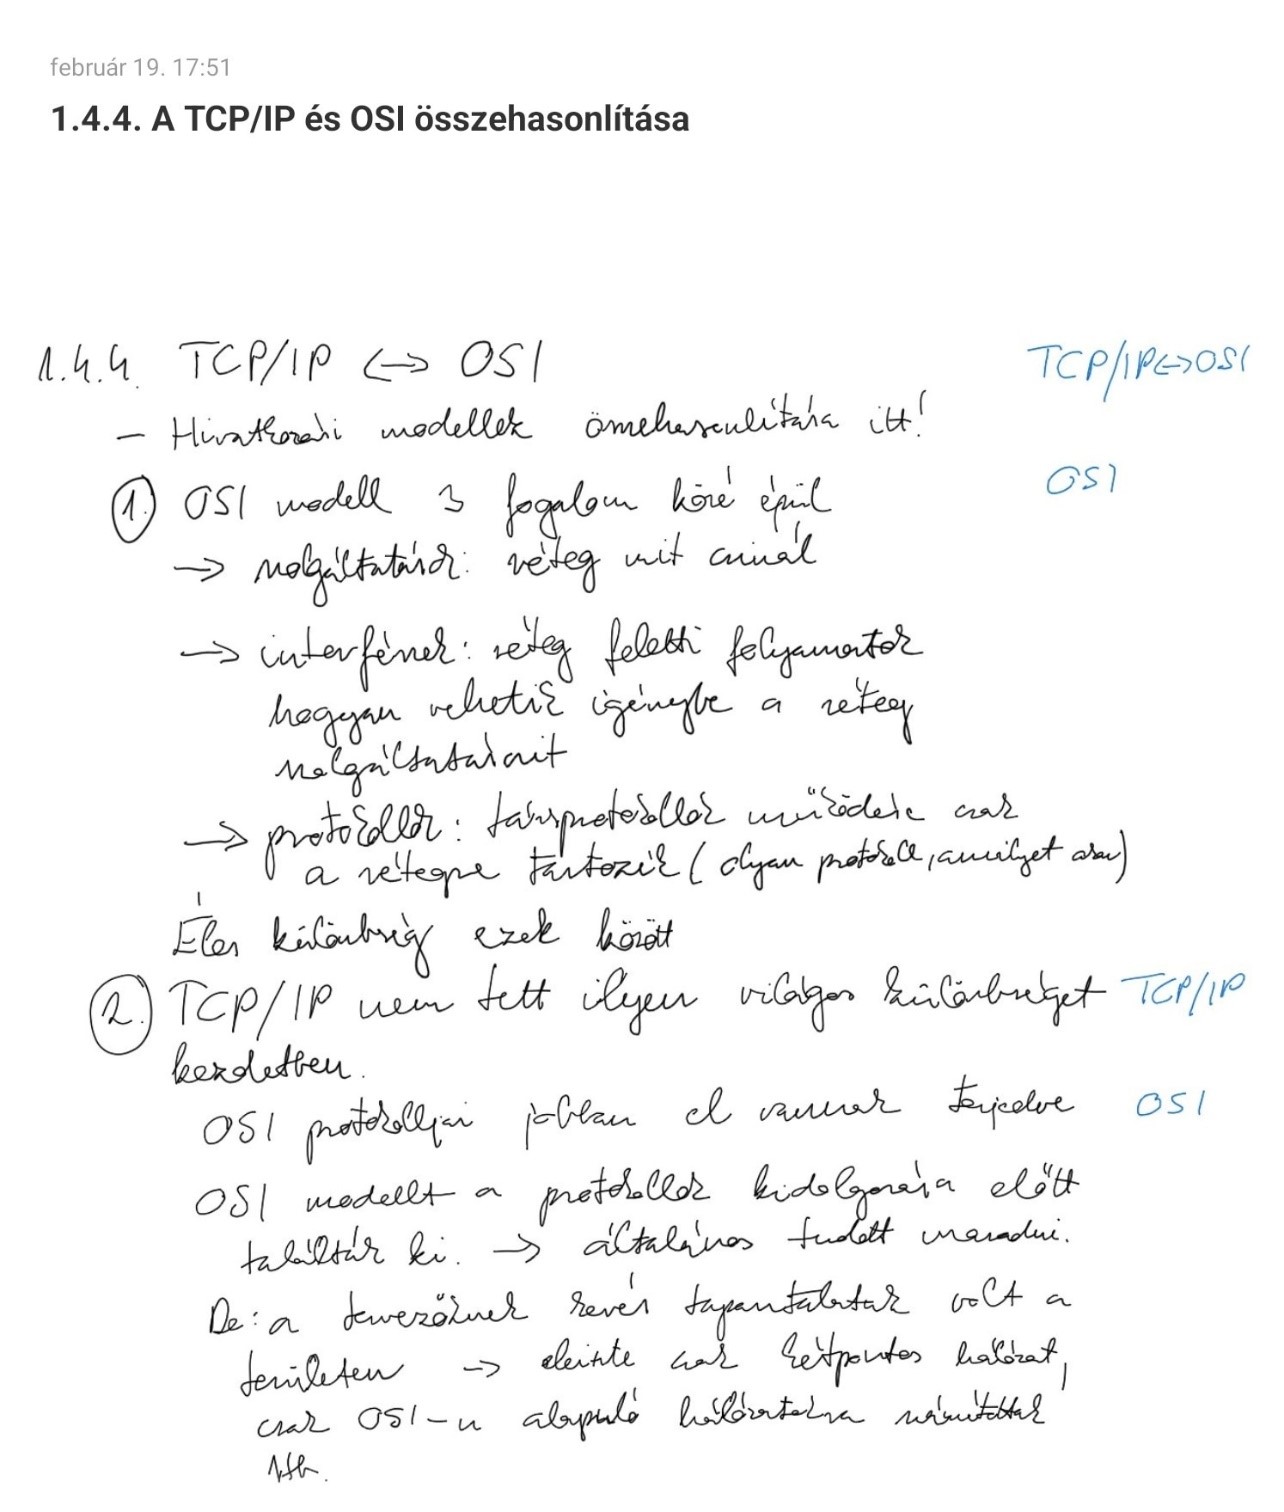 február 19. 17:51
1.4.4. A TCP/IP és OSI összehasonlítása
1.4.4. TCP/IP <-> OSI
TCP/IP<->OSI
- Hivatkozási modellek összehasonlítása itt!
1. OSI modell 3 fogalom köré épül
OSI
-> szolgáltatások: réteg mit csinál
-> interfészek: réteg feletti folyamatok
hogyan vehetik igénybe a réteg
szolgáltatásait
-> protokollok: társprotokollok működése csak
a rétegre tartozik (olyan protokoll, amilyet akar)
Éles különbség ezek között
2. TCP/IP nem tett ilyen világos különbséget
TCP/IP
kezdetben.
OSI protokolljai jobban el vannak terjedve
OSI
OSI modellt a protokollok kidolgozása előtt
találták ki. -> általános tudott maradni.
De: a tervezőknek kevés tapasztalatuk volt a
területen -> eleinte csak kétpontos hálózat,
csak OSI-n alapuló hálózatokra számítottak
stb.